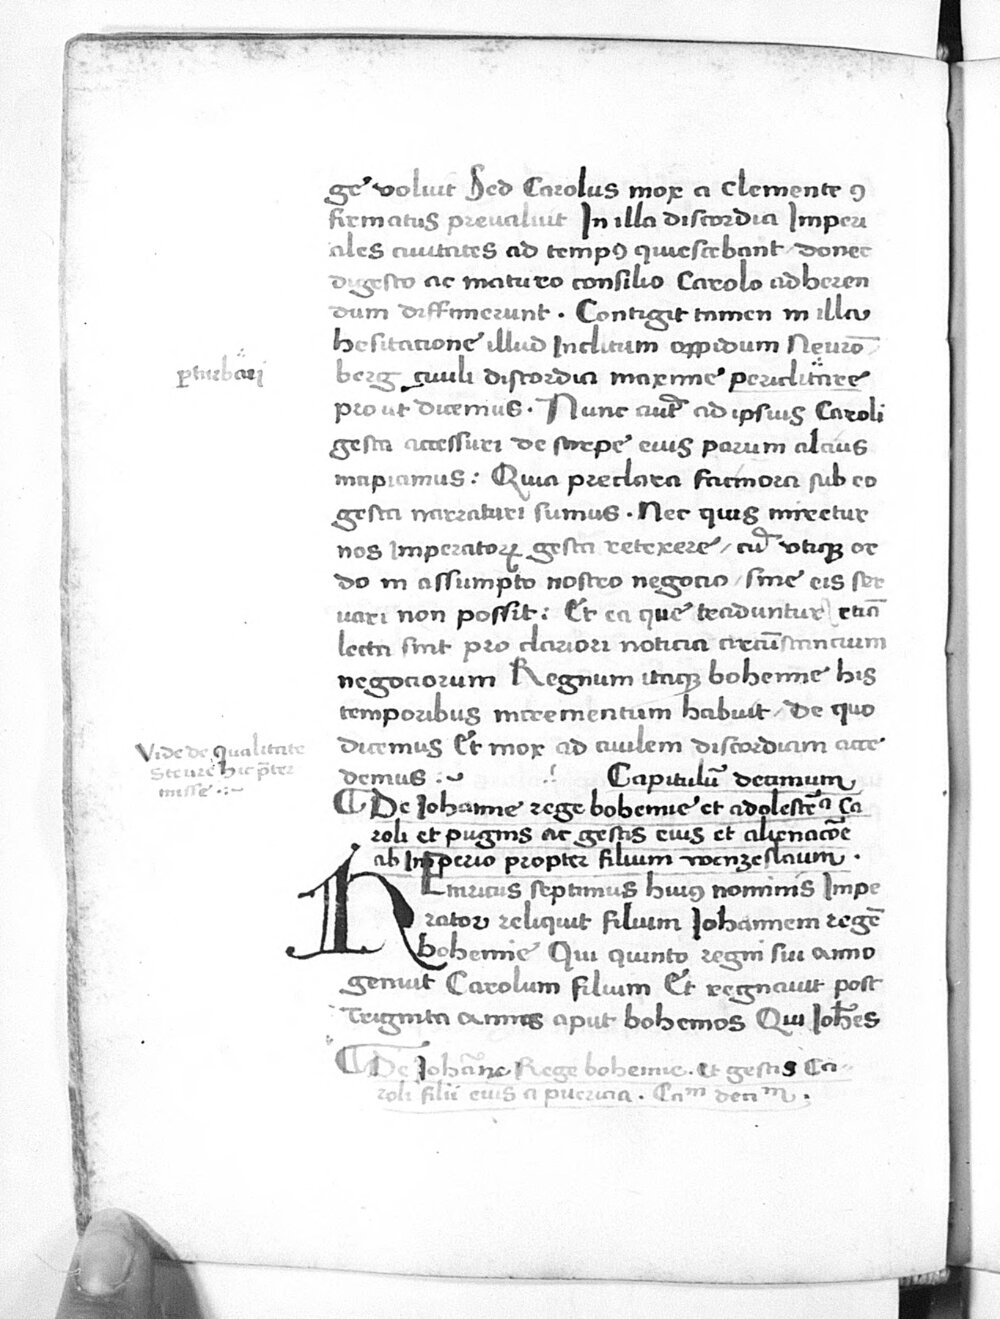 ge voluit Sed Carolus mox a Clemente ꝯ
firmatus prevaluit In illa discordia Imperi
ales civitates ad tempꝯ quiescebant / donec
digesto ac maturo consilio Carolo adheren
dum diffinierunt . Contigit tamen in illa
hesitacione illud Inclitum oppidum Neurō
berg civili discordia maxime periclitare
ꝑturbari
prout dicemus . Nunc aut̄ ad ipsius Caroli
gesta accessuri de stirpe eius parum alcius
incipiamus : Quia preclara facinora sub eo
gesta narraturi sumus . Nec quis miretur
nos Imperatoꝝ gesta retexere / cū utiqꝫ or
do in assumpto nostro negocio / sine eis ser
vari non possit : Et ea que traduntur etiā
lecta sint pro clariori noticia circūstancium
negociorum Regnum itaqꝫ bohemie his
temporibus incrementum habuit / De quo
dicemus Et mox ad civilem discordiam acce
demus :~ Capitulū decimum
Vide de qualitate
Steure hic p̄ter
misse .:~
De Johanne rege bohemie et adolescē͞a Ca
roli et pugnis ac gestis eius et alienacōe
ab Imperio propter filium wenzeslaum .
HEinricus septimus huiꝯ nominis Impe
rator reliquit filium Johannem regē
bohemie Qui quinto regni sui anno
genuit Carolum filium Et regnavit post
Triginta annis aput bohemos Qui Joh̄es
De Joha͞ne Rege bohemie . et gestis Ca-
roli filii eius a puericia . Caᵐ deciᵐ .